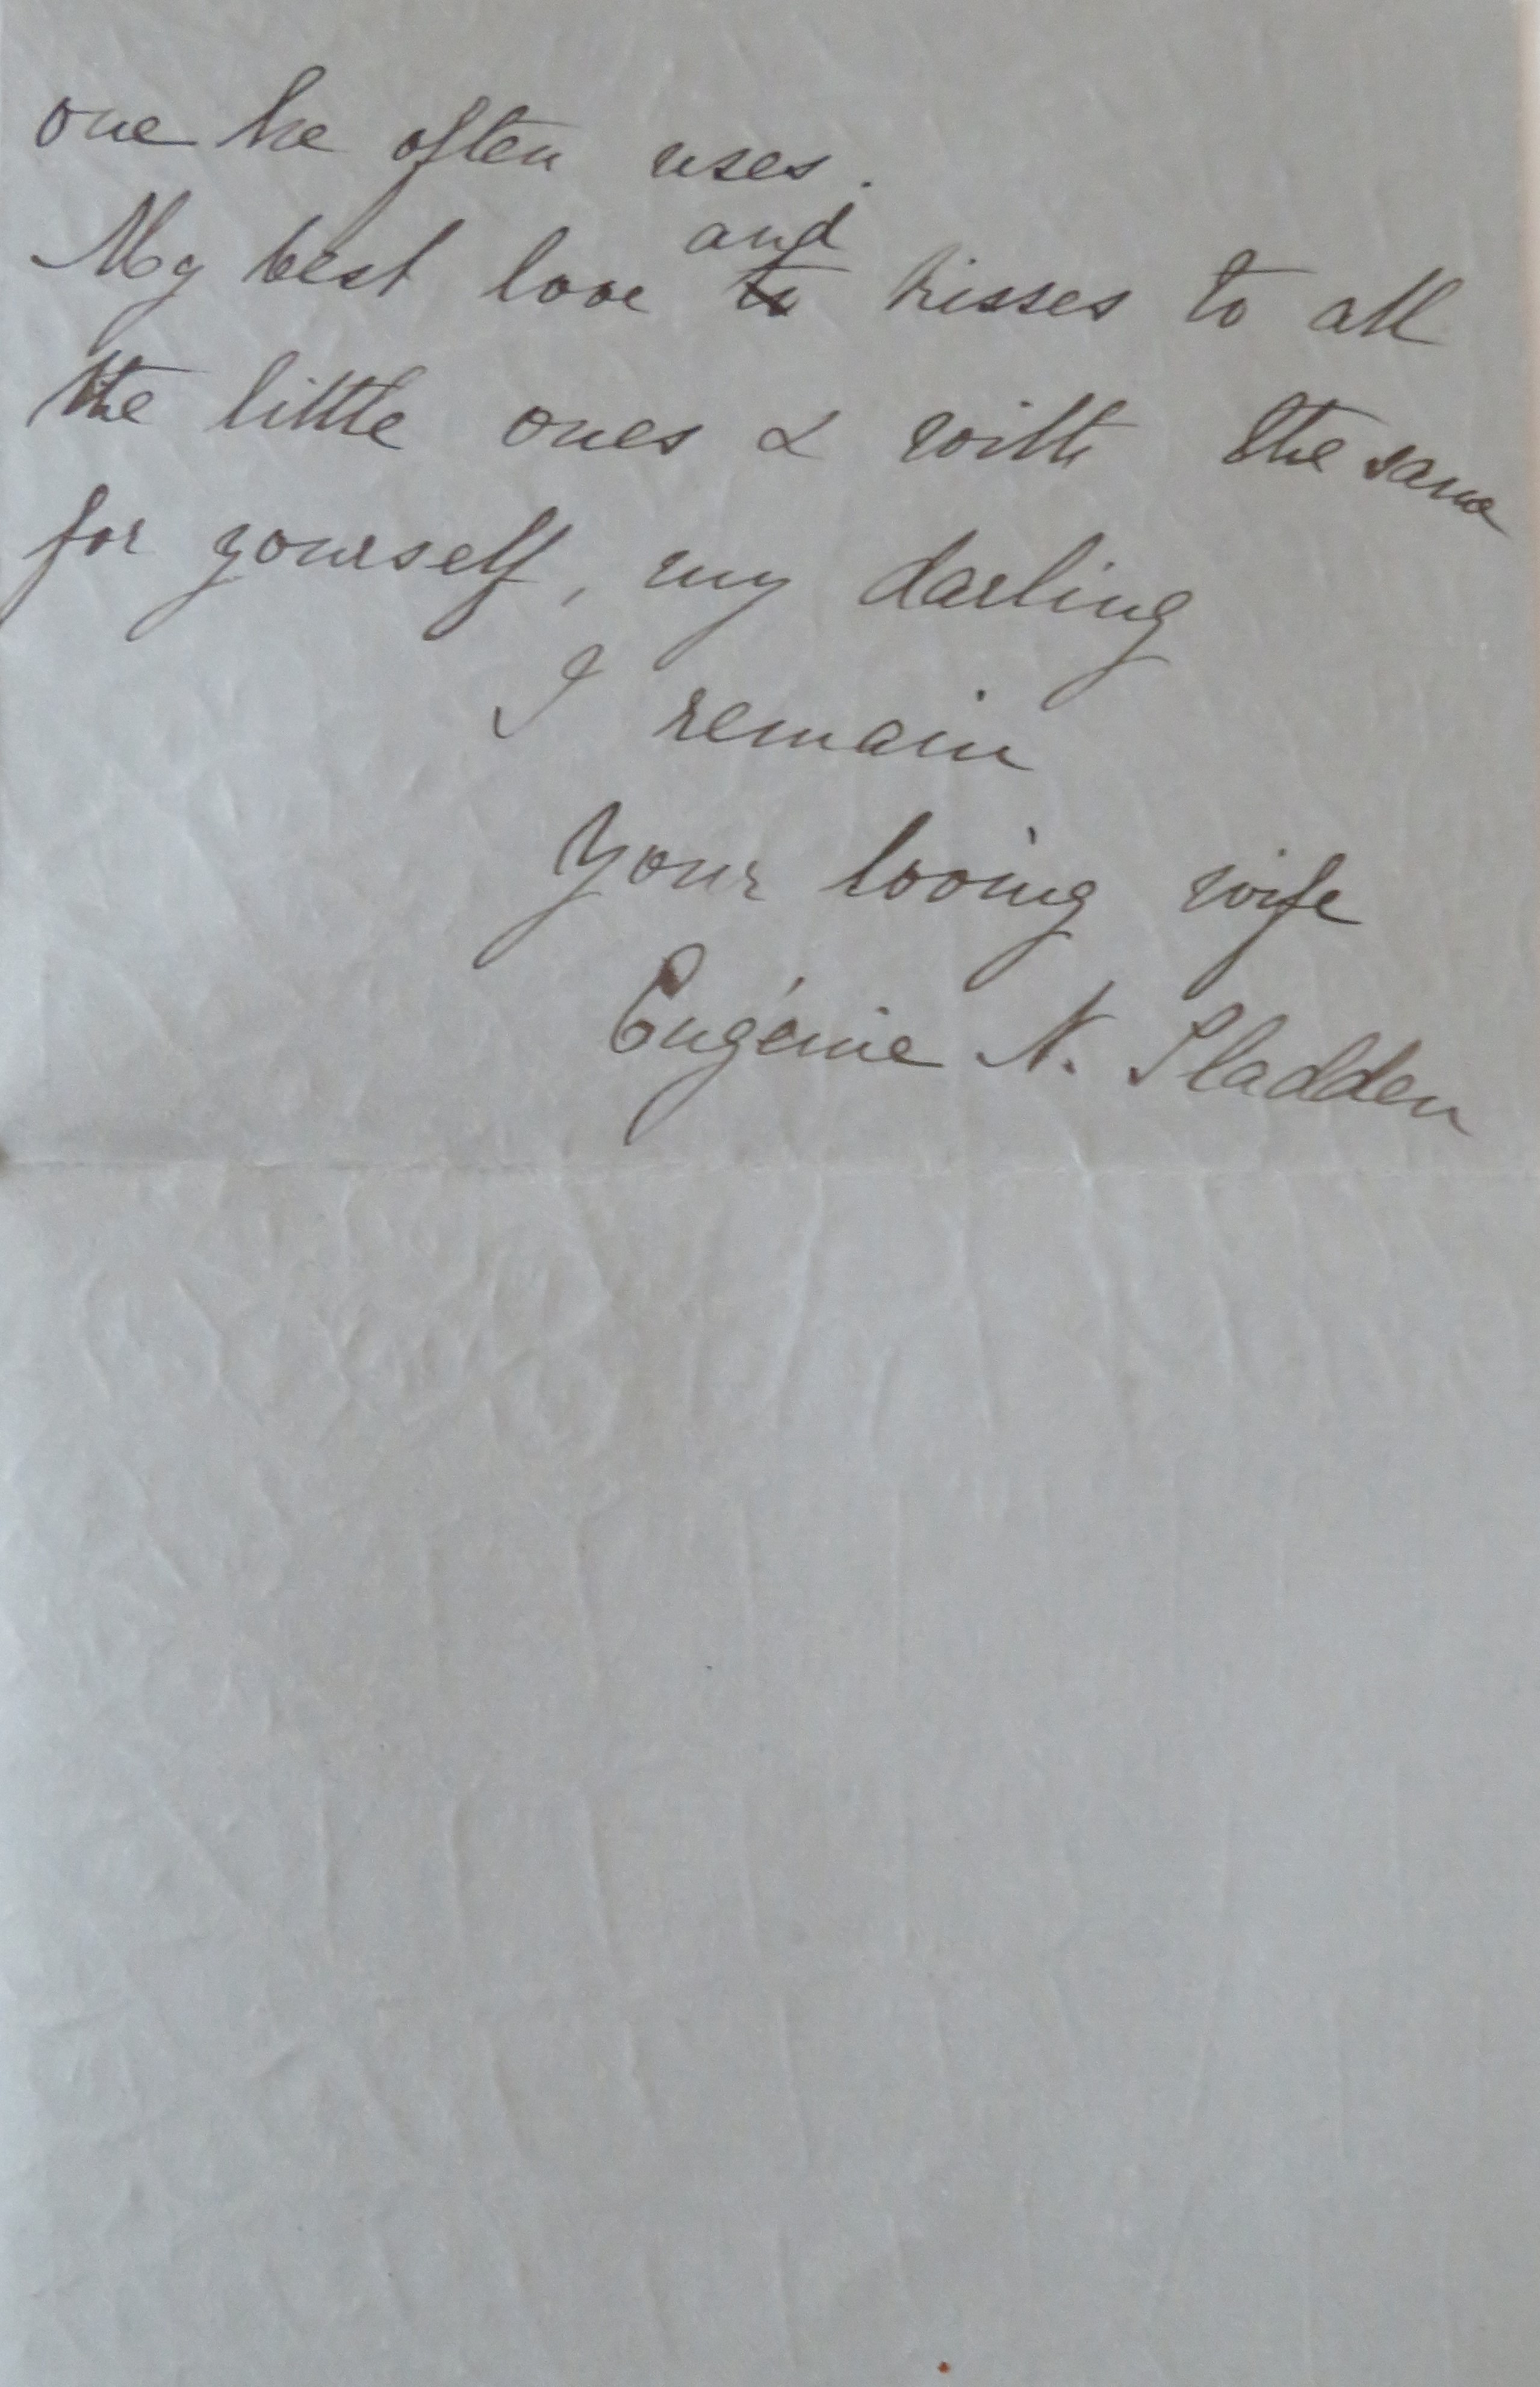 one he often uses.
My best love to and kisses to all
the little ones & with the same
for yourself, my darling
I remain
Your loving wife
Eugénie N. Sladden